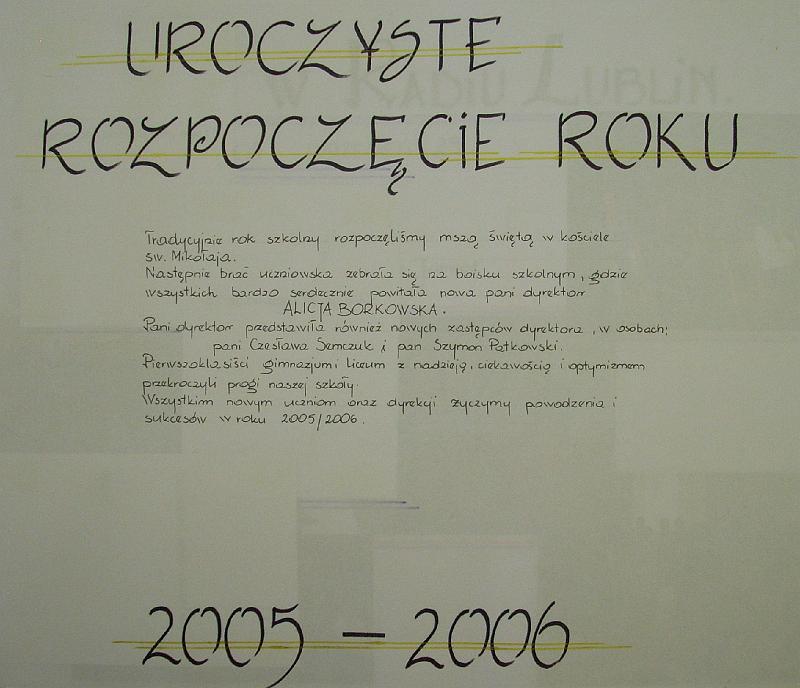 UROCZYSTE
W RADIU LUBLIN.
ROZPOCZĘCIE ROKU
Tradycyjnie rok szkolny rozpoczęliśmy mszą świętą w kościele
św. Mikołaja.
Następnie brać uczniowska zebrała się na boisku szkolnym, gdzie
wszystkich bardzo serdecznie powitała nowa pani dyrektor
ALICJA BORKOWSKA.
Pani dyrektor przedstawiła również nowych zastępców dyrektora, w osobach:
pani Czesława Semczuk i pan Szymon Patkowski.
Pierwszoklasiści gimnazjum i liceum z nadzieją, ciekawością i optymizmem
przekroczyli progi naszej szkoły.
Wszystkim nowym uczniom oraz dyrekcji życzymy powodzenia i
sukcesów w roku 2005/2006.
2005 – 2006